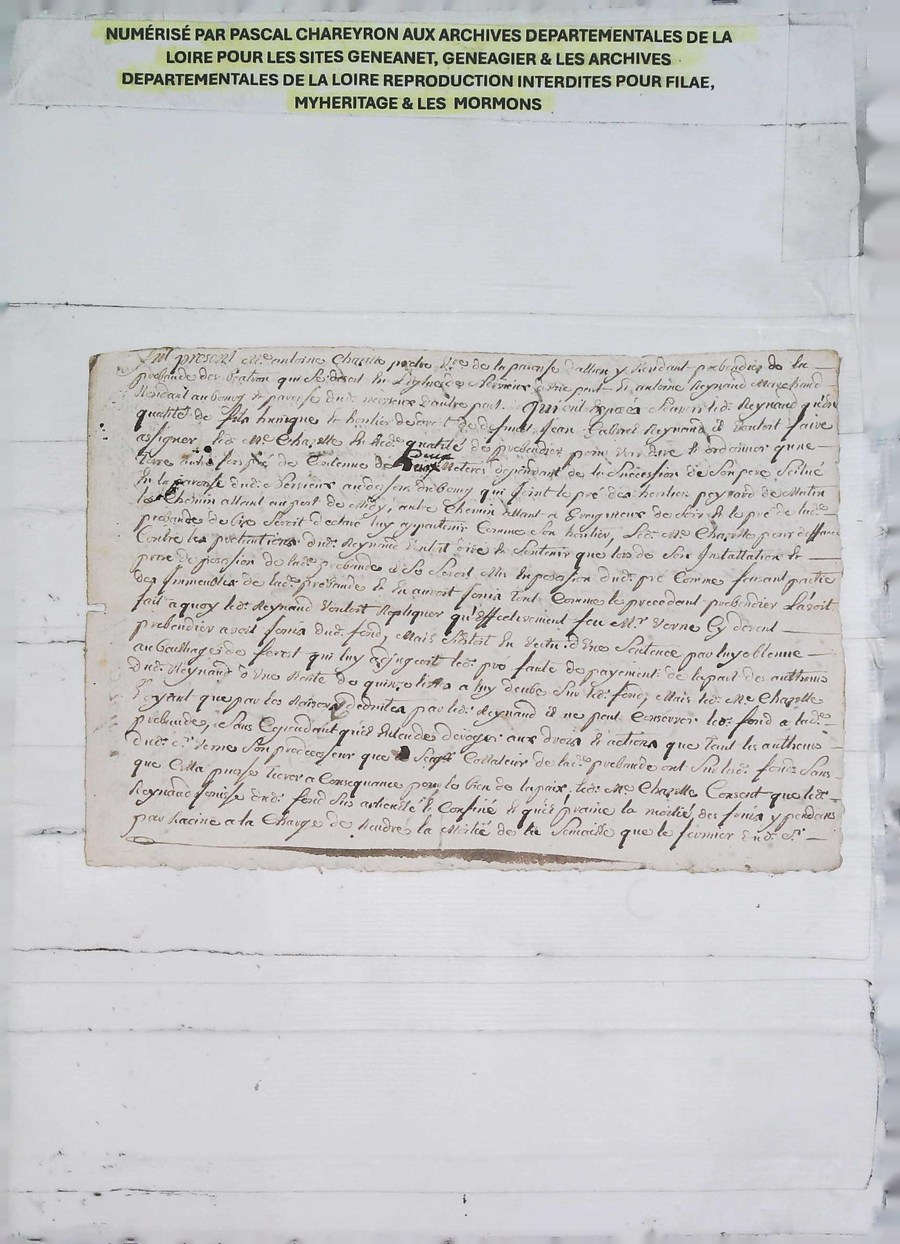 NUMÉRISÉ PAR PASCAL CHAREYRON AUX ARCHIVES DEPARTEMENTALES DE LA
LOIRE POUR LES SITES GENEANET, GENEAGIER & LES ARCHIVES
DEPARTEMENTALES DE LA LOIRE REPRODUCTION INTERDITES POUR FILAE,
MYHERITAGE & LES MORMONS
present Me antoine Chapelle de la paroisse y Residant prebendier de la
prebande des qui se dessert En de Nervieux d'une part Et antoine Reynaud Marchand
Residant au bourg Et paroisse dud. nervieux d'autre part. Qui ont Exposés sçavoir led. Reynaud qu'En
qualité de fils Et heritier de droit de deffunt Jean Reynaud il Vouloit faire
assigner led. Me Chapelle En lad. qualité de prebendier pour voir dire Et ordonner qu'une
terre de Contenue de deux Meteres dependant de la Succession de Son pere Scitué
En la paroisse dud. Nervieux au dessus du bourg qui Joint le pré des heritiers peynard de Matin
le Chemin allant au port de autre Chemin allant a de Soir Et le pré de lad.
prebande de bize Seroit declaré luy appartenir Comme Son heritier, Led. Me Chapelle pour deffance
Contre les pretantions dud. Reynaud Vouloit dire Et Soutenir que lors de Son Installation Et
prise de possession de lad. prebande il Se Seroit Mis En possession dud. pré Comme faisant partie
des Immeubles de lad. prebande Et En auroit Joüis tout Comme le precedant prebendier L'avoit
fait a quoy led. Reynaud Vouloit Repliquer qu'Effectivement feu Mr Verne Cy devent
prebendier avoit Jouis dud. fond, Mais En Vertu d'Une Sentence par luy obtenue
au bailliage de forest qui luy adjugeoit led. pré faute de payement de la part des autheurs
dud. Reynaud d'Une Rente de quinze a luy deube Sur led. fond, Mais led. Me Chapelle
Voyant que par les Raisons deduites par led. Reynaud il ne peut Conserver led. fond a lad.
prebande, Sans Cependant qu'il Entende deroger aux droits Et actions que tant les autheurs
dud. Sr Verne Son predecesseur que Collateur de lad. prebande ont Sur led. fond, Sans
que Cella puisse tirer a Consequance pour le bien de la paix, led. Me Chapelle Consent que led.
Reynaud Jouisse dud. fond Sus articullé Et Confiné Et qu'il prenne la moitié des fruis y pendans
par Racine a la Charge de Rendre la Moitié de la Semaille que le fermier dud. Sr